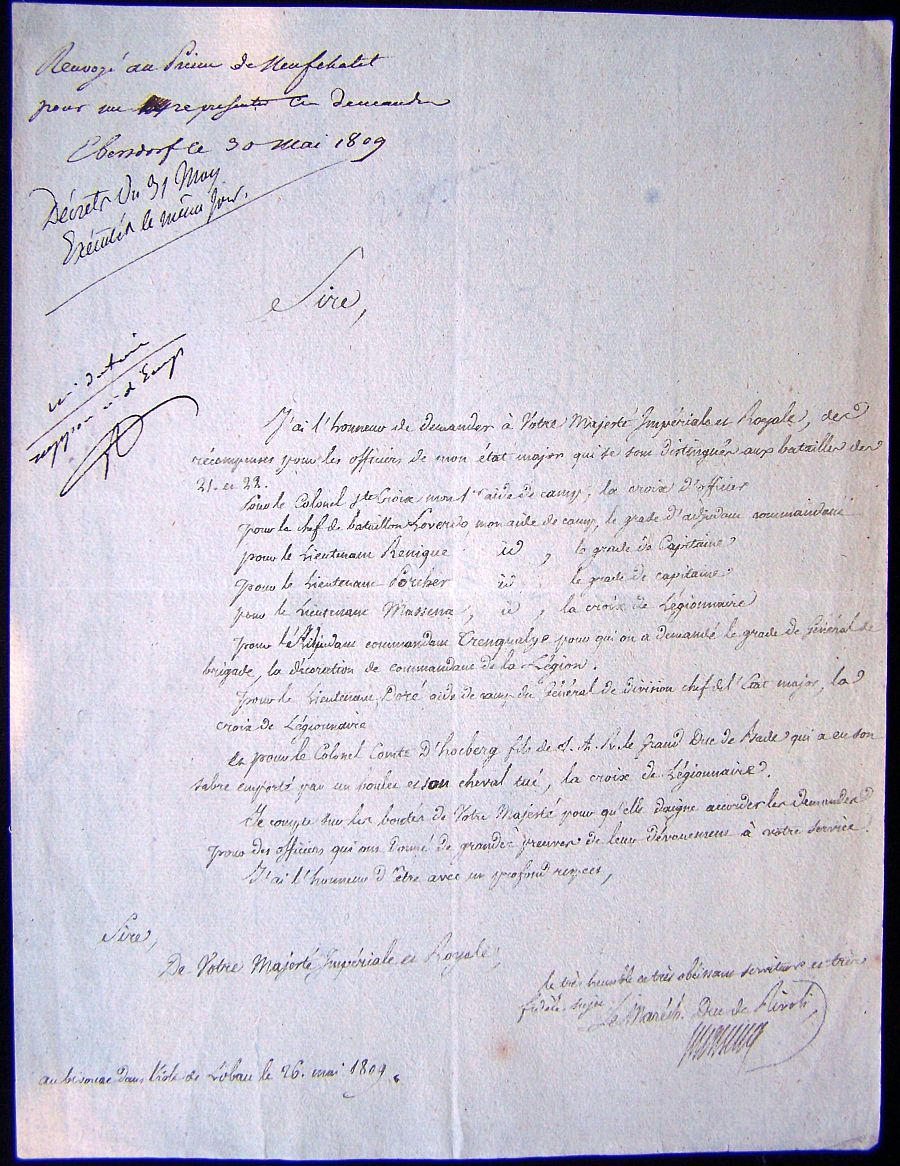 Renvoyé au Prince de Neufchatel
pour me representer ces demandes
Ebersdorf le 30 mai 1809
Décrets du 31 May
Exécutés le même jour.
Sire,
J'ai l'honneur de demander à Votre Majesté Impériale et Royale, des
récompenses pour les officiers de mon état major qui se sont distingués aux batailles des
21. et 22.
pour le Colonel Ste Croix mon 1er aide de camp, la croix d'officier
pour le chef de bataillon Loverdo, mon aide de camp, le grade d'adjudant commandant
pour le Lieutenant Renique id, le grade de Capitaine
pour le Lieutenant Porcher id le grade de capitaine
pour le Lieutenant Massena, id, la croix de Légionnaire
pour l'Adjudant commandant Trenqualye pour qui on a demandé le grade de Général de
brigade, la décoration de commandant de la Légion.
pour le Lieutenant Boré aide de camp du Général de division chef de l'Etat major, la
croix de Légionnaire
et pour le Colonel Comte D'hocberg fils de S. A. R. le Grand Duc de Bade qui a eu son
sabre emporté par un boulet et son cheval tué, la croix de Légionnaire.
Je compte sur les bontés de Votre Majesté pour qu'elle daigne accorder les demandes
pour des officiers qui ont donné de grandes preuves de leur dévouement à votre service.
J'ai l'honneur d'être avec un profond respect,
Sire,
De Votre Majesté Impériale et Royale,
le très humble et très obéissant serviteur et très
fidèle sujet
Le Maréch. Duc de Rivoli,
Massena
au bivouac dans l'isle de Lobau le 26. mai 1809.